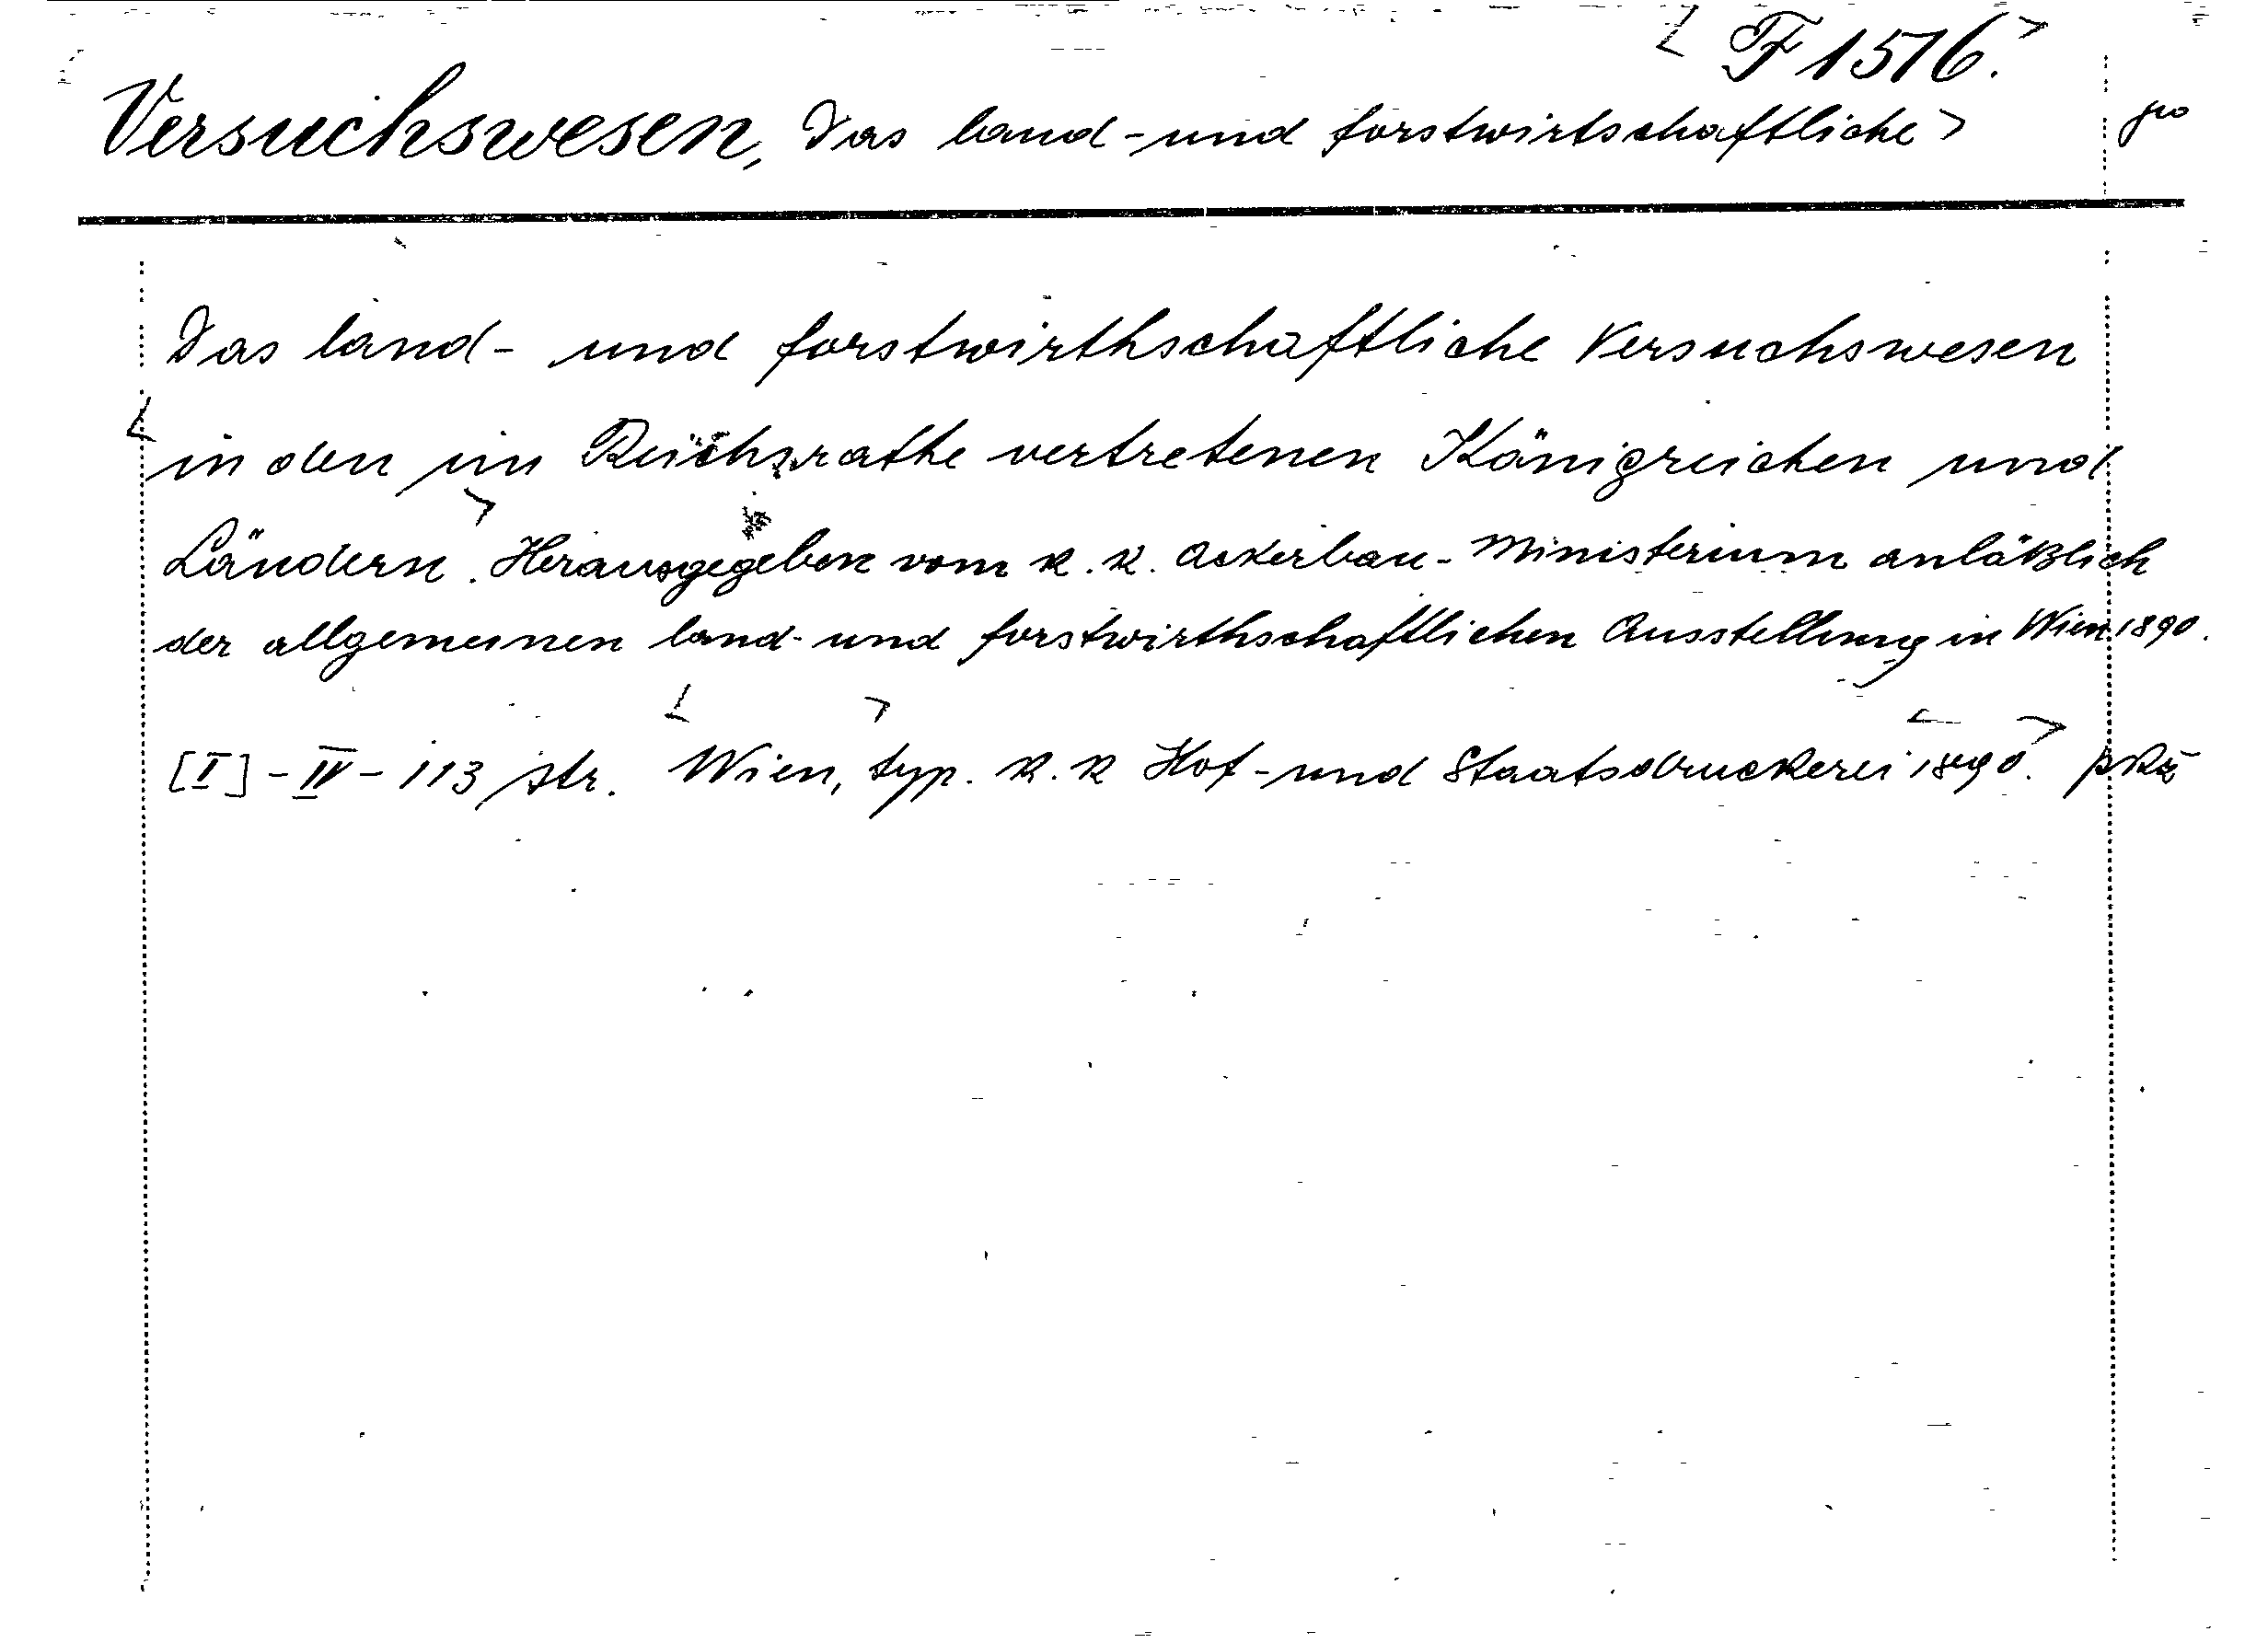 F 1516.
Versuchswesen, Das land-und forstwirtschaftliche
Das land- und forstwirthschaftliche Versuchswesen
in den im Reichsrathe vertretenen Königreichen und
Ländern. Herausgegeben vom k. k. Ackerbau-Ministerium anläßlich
der allgemeinen land- und forstwirthschaftlichen Ausstellung in Wien 1890.
[I]-IV-113 str. Wien, typ. k. k Hof-und Staatsdruckerei 1890.